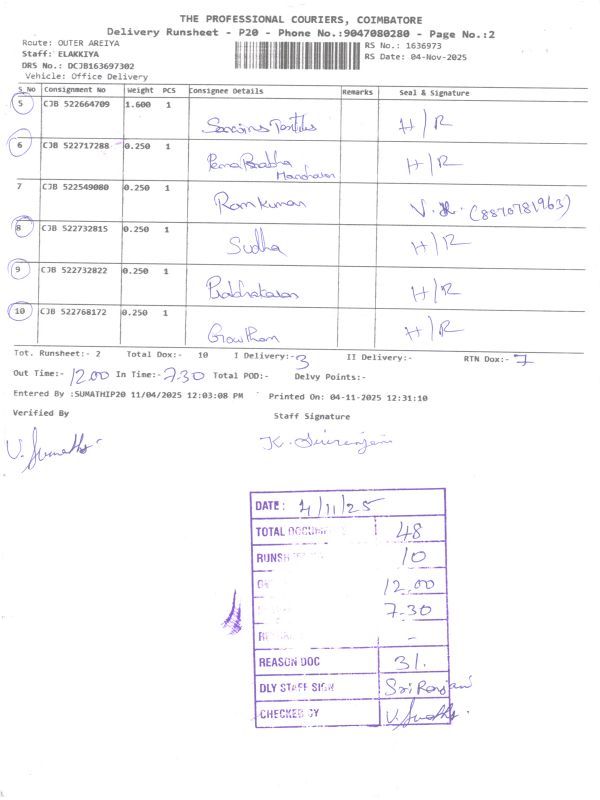 THE PROFESSIONAL COURIERS, COIMBATORE
Delivery Runsheet - P20 - Phone No.:9047080280 - Page No.:2
Route: OUTER AREIYA
RS No.: 1636973
Staff: ELAKKIYA
RS Date: 04-Nov-2025
DRS No.: DCJB163697302
Vehicle: Office Delivery
S_No Consignment No Weight PCS Consignee Details Remarks Seal & Signature
5 CJB 522664709 1.600 1
H/R
6 CJB 522717288 0.250 1
H/R
7 CJB 522549080 0.250 1
Ramkumar (8870781963)
8 CJB 522732815 0.250 1
Sudha H/R
9 CJB 522732822 0.250 1
Prabhakaran H/R
10 CJB 522768172 0.250 1
Gowtham H/R
Tot. Runsheet:- 2 Total Dox:- 10 I Delivery:- 3 II Delivery:- RTN Dox:- 7
Out Time:- 12.00 In Time:- 7.30 Total POD:- Delvy Points:-
Entered By :SUMATHIP20 11/04/2025 12:03:08 PM Printed On: 04-11-2025 12:31:10
Verified By Staff Signature
DATE: 4/11/25
TOTAL 48
10
12.00
7.30
-
REASON DOC 31.
DLY STAFF SIGN
CHECKED BY V. Sumathi.